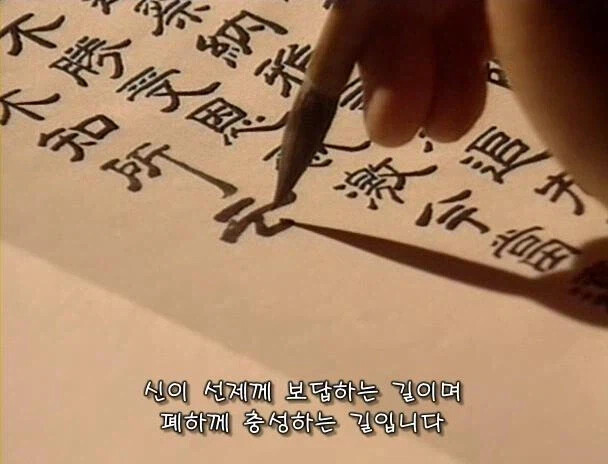 察納雅追先
不勝受恩感激今當遠
不知所云
신이 선제께 보답하는 길이며
폐하께 충성하는 길입니다